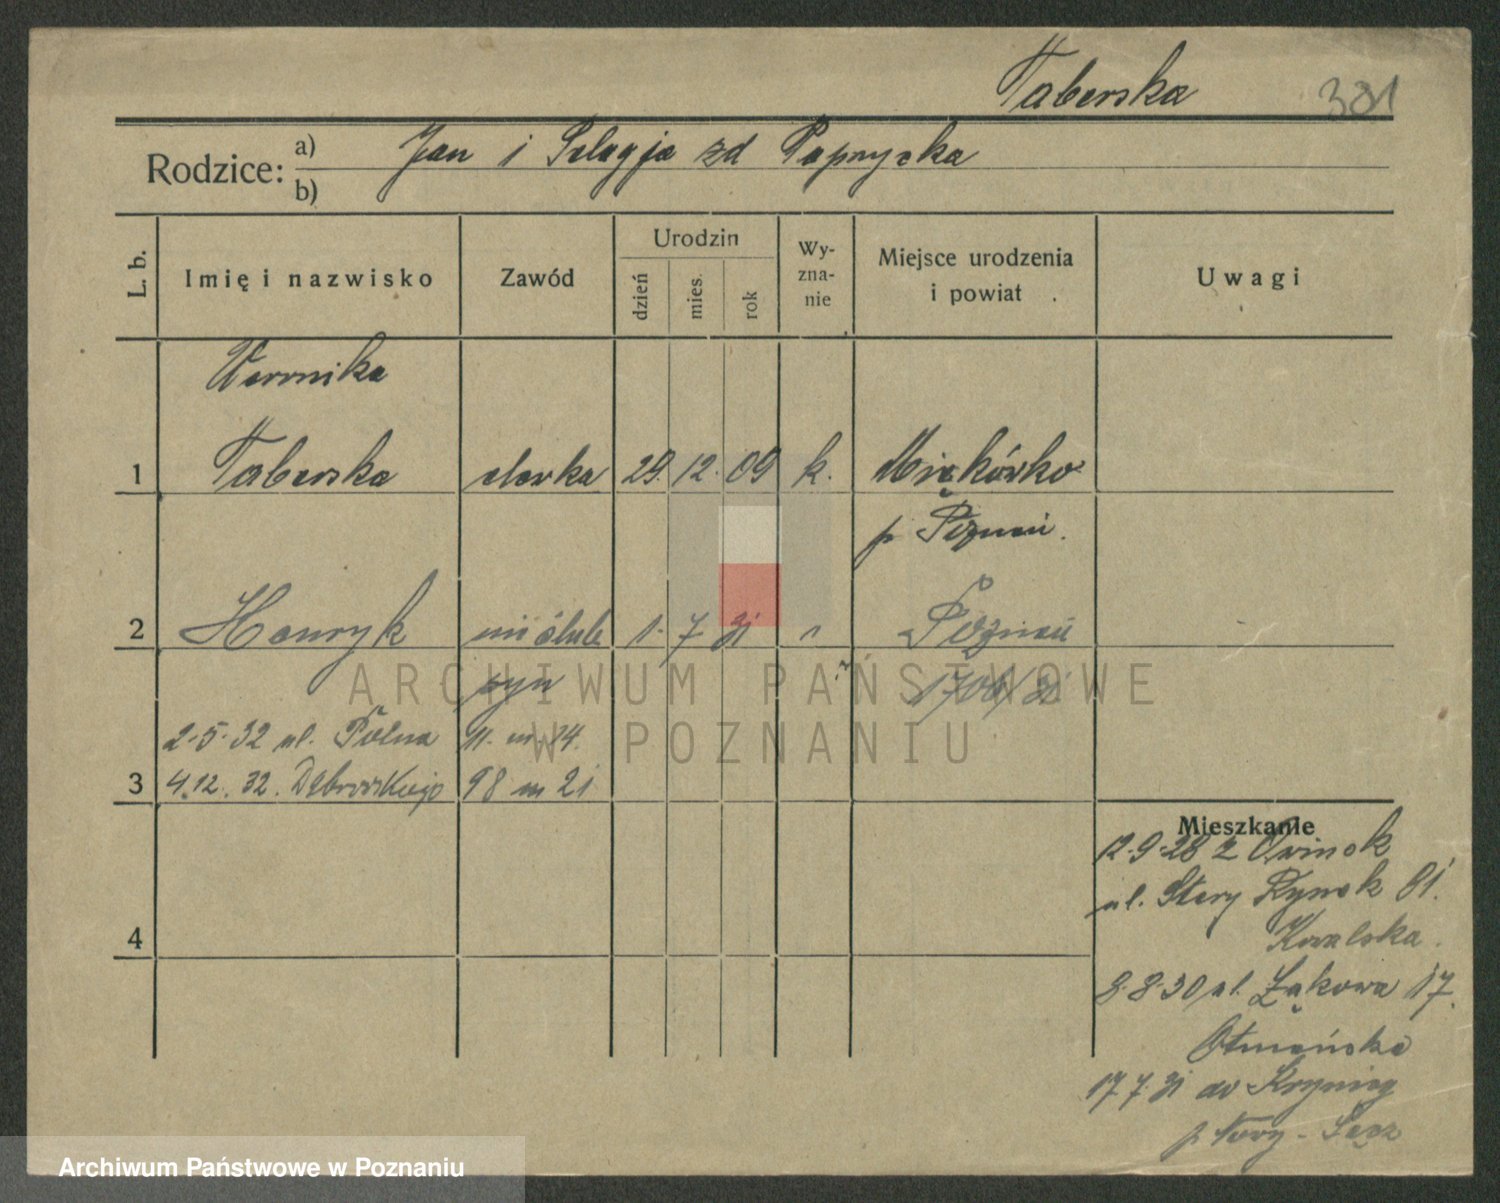 Taberska 381
Rodzice: a) Jan i Pelagja zd Paprycka
b)
L. b. Imię i nazwisko Zawód Urodzin dzień mies. rok Wy-zna-nie Miejsce urodzenia i powiat Uwagi
Weronika
1 Taberska elewka 29. 12. 09 k. Miękówko
p Poznań.
2 Henryk nieślub 1. 7 31 " Poznań
syn 1706/31
2.5.32 ul. Polna 11. m. 14.
3 4.12.32. Dąbrowskiego 98 m 21
Mieszkanie
12.9.28 z Owinsk
ul. Stary Rynek 81.
4 Kowalska.
8.8.30 ul. Łąkowa 17.
Otmańska
17.7.31 do Krynicy
p Nowy-Sącz
ARCHIWUM PAŃSTWOWE
W POZNANIU
Archiwum Państwowe w Poznaniu